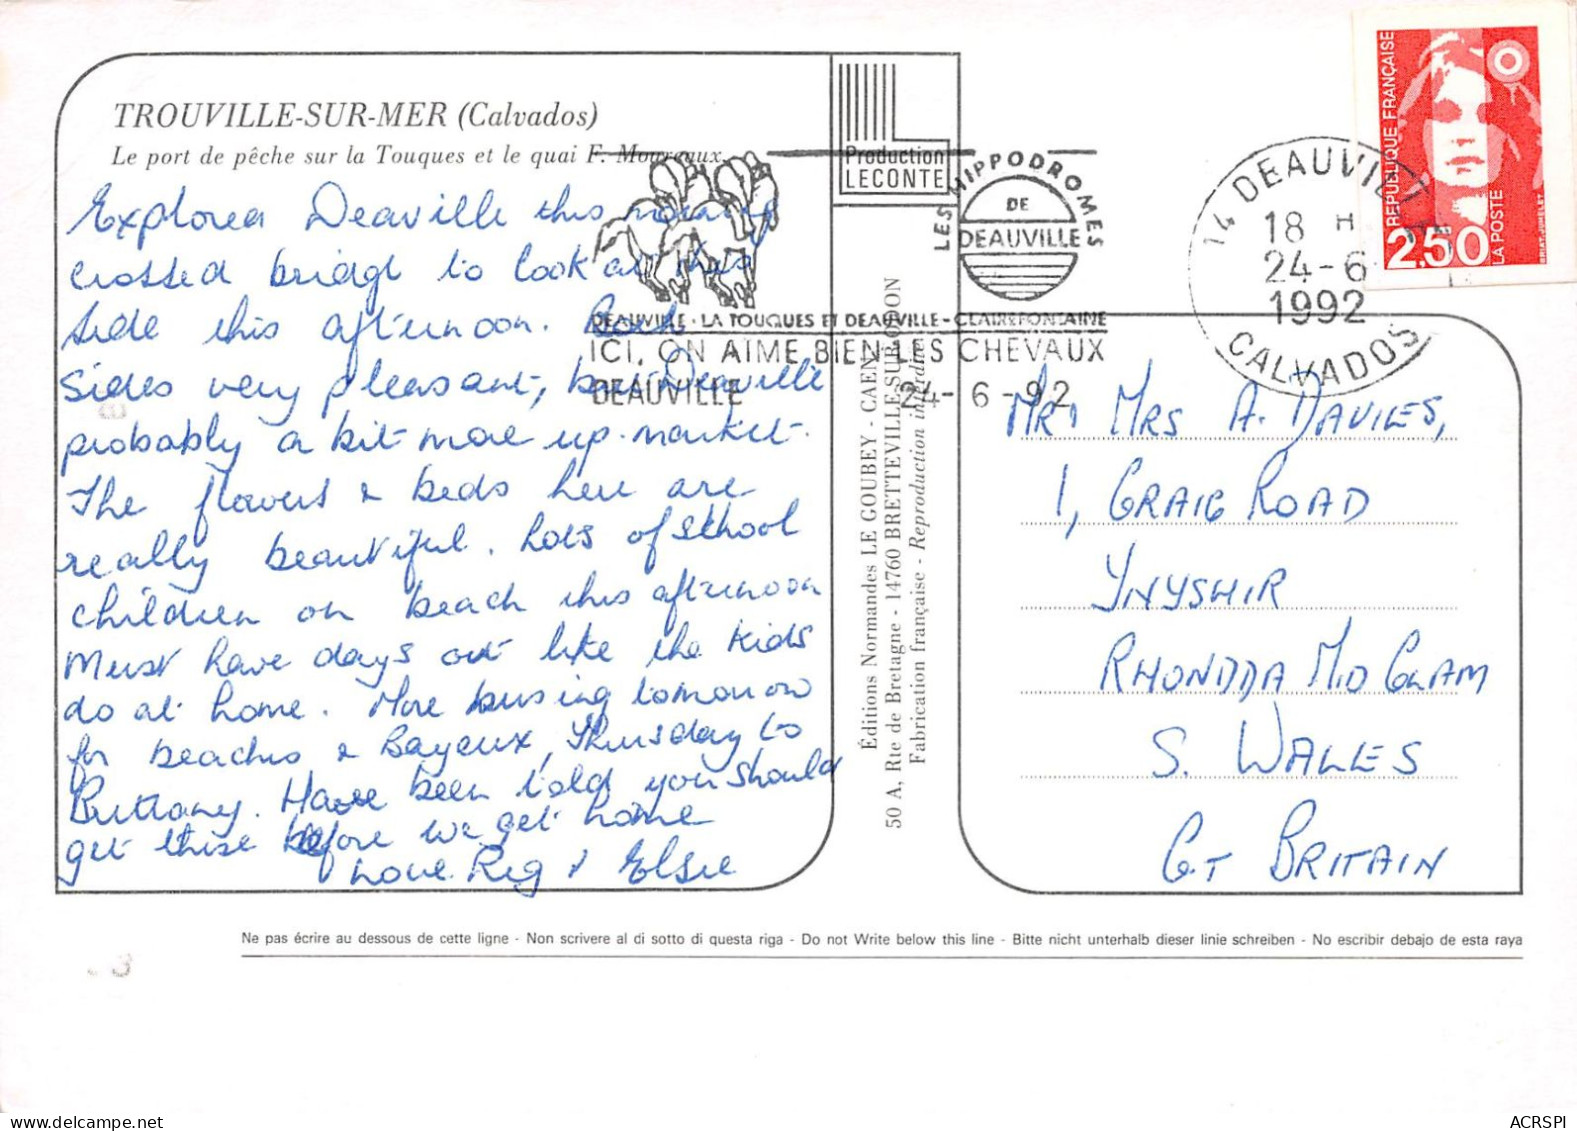 TROUVILLE-SUR-MER (Calvados)
Le port de pêche sur la Touques et le quai F. Moureaux.
Explored Deauville this morning
crossed bridge to look at this
side this afternoon. Both
sides very pleasant, but Deauville
probably a bit more up-market.
The flowers & beds here are
really beautiful. Lots of school
children on beach this afternoon
Must have days out like the kids
do at home. More busing tomorrow
for beaches & Bayeux, Thursday to
Brittany. Have been told you should
get these before we get home
Love Reg & Elsie
Production
LECONTE
LES HIPPODROMES
DE
DEAUVILLE
DEAUVILLE - LA TOUQUES ET DEAUVILLE - CLAIREFONTAINE
ICI, ON AIME BIEN LES CHEVAUX
DEAUVILLE 24-6-92
14 DEAUVILLE
18 H
24-6
1992
CALVADOS
RÉPUBLIQUE FRANÇAISE
2,50
LA POSTE
BRIAT. JUMELET
Éditions Normandes LE GOUBEY - CAEN
50 A, Rte de Bretagne - 14760 BRETTEVILLE-SUR-ODON
Fabrication française - Reproduction interdite
MR & MRS A. DAVIES,
1, GRAIG ROAD
YNYSHIR
RHONDDA MID GLAM
S. WALES
GT BRITAIN
Ne pas écrire au dessous de cette ligne - Non scrivere al di sotto di questa riga - Do not Write below this line - Bitte nicht unterhalb dieser linie schreiben - No escribir debajo de esta raya
ACRSPI